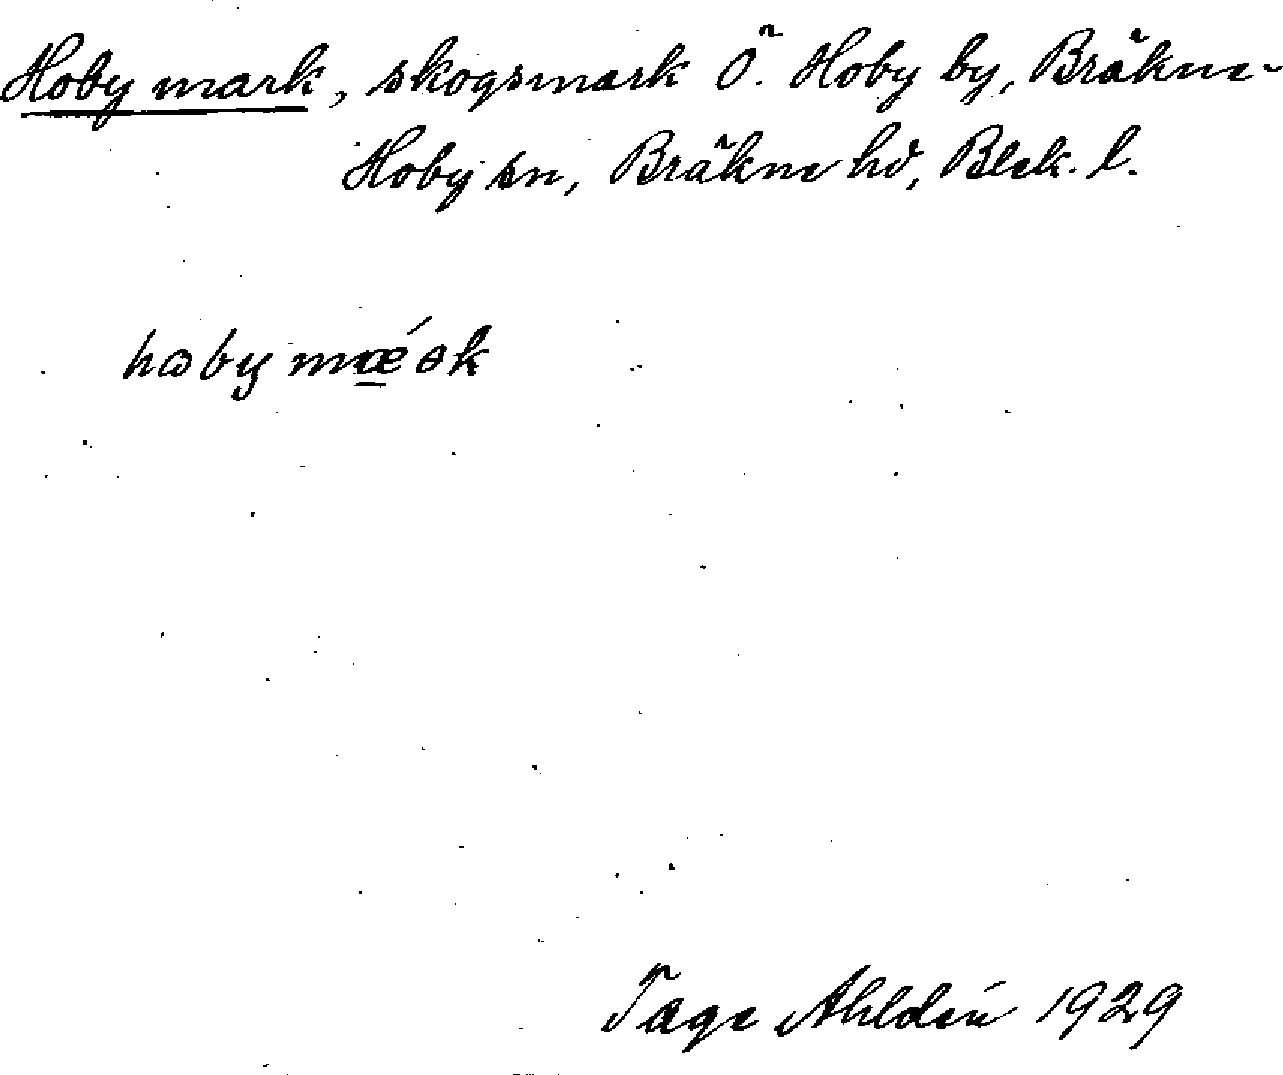 Hoby mark, skogsmark Ö. Hoby by, Bräkne-
Hoby sn, Bräkne hd, Blek. l.
Tage Ahldén 1929